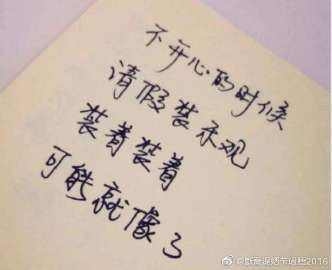 不开心的时候
请假装乐观
装着装着
可能就像了
2016